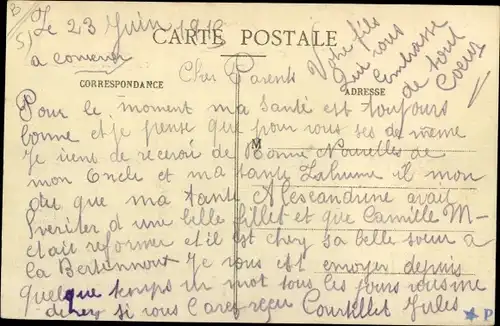 Le 23 Juin 1915
CARTE POSTALE
a conserver
Votre fils
qui vous
Embrasse
de tout
Coeur
Cher Parents
CORRESPONDANCE
ADRESSE
Pour le moment ma santé est toujours
bonne et je pense que pour vous ses de meme
M
Je viens de recevoir de Bonne Nouvelles de
mon Oncle et ma tante il mon
du que ma tante Alexandrine avait
heriter d une belle fillet et que Camille M-
etait reformer et il est chez sa belle soeur a
la Je vous est envoyer depuis
quelque temps un mot tous les jours
si vous l'avez reçu Jules
P